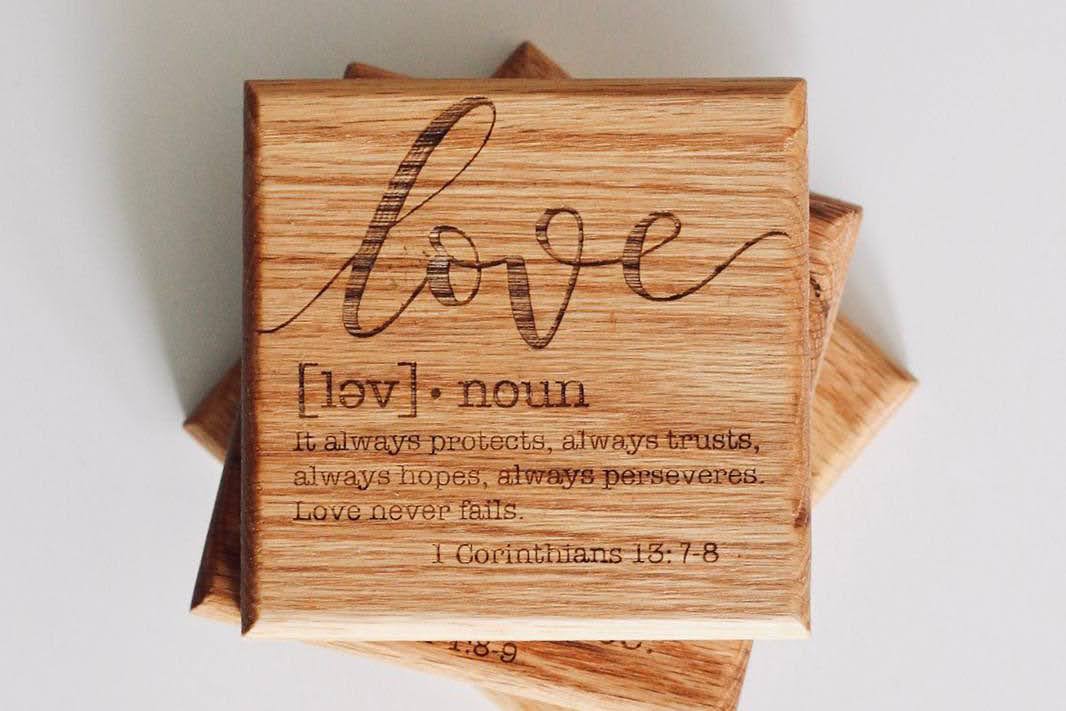 love
[ləv]• noun
It always protects, always trusts,
always hopes, always perseveres.
Love never fails.
1 Corinthians 13:7-8
1:8-9